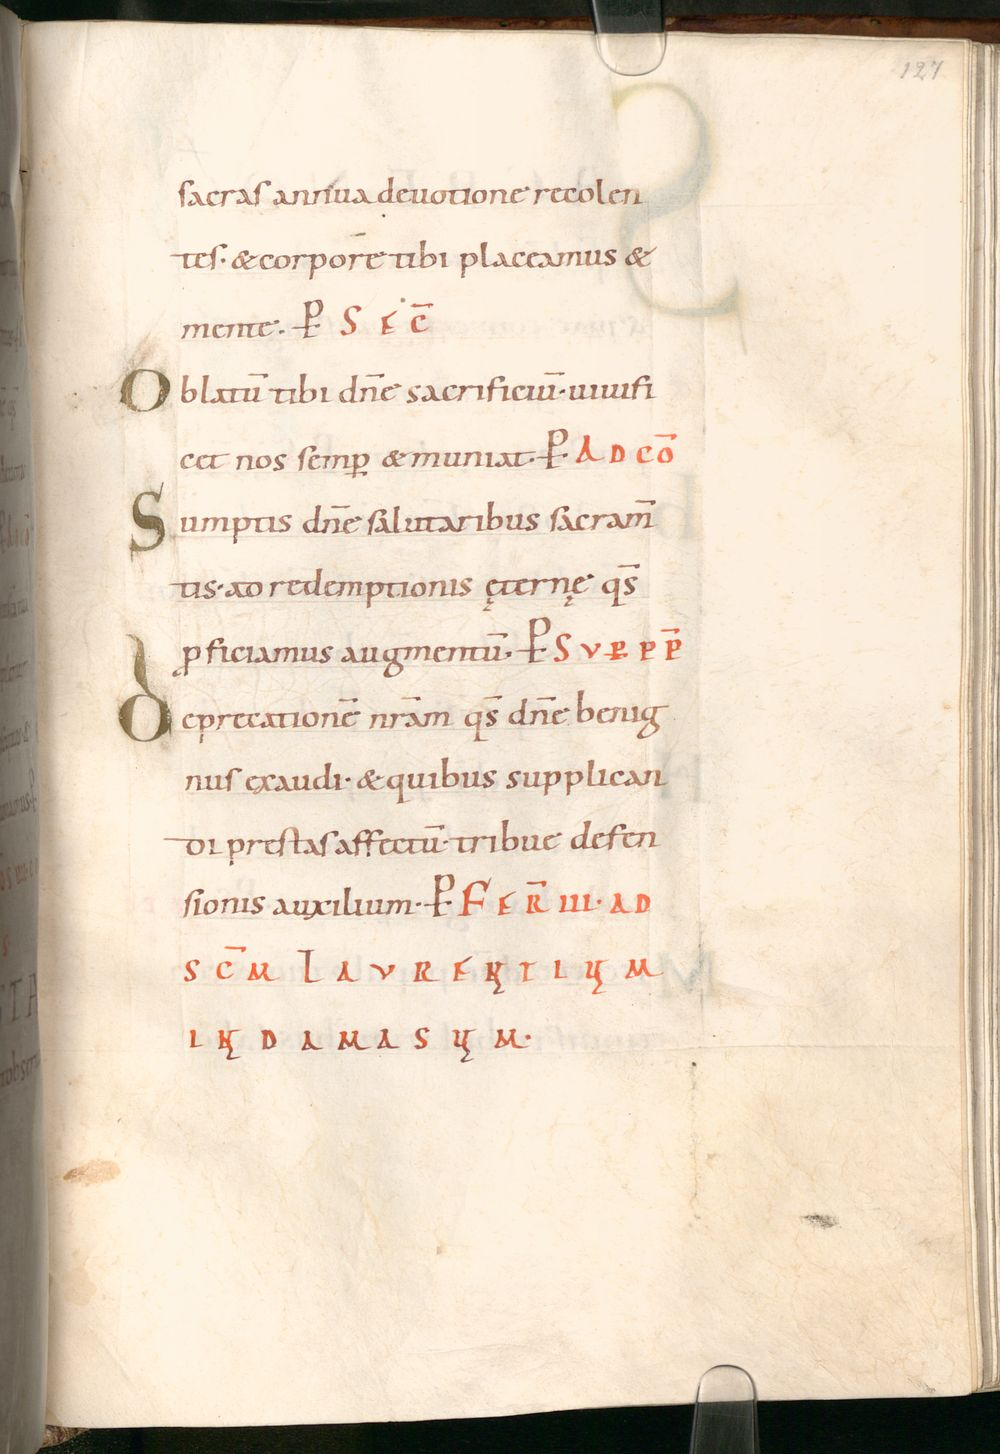 127
sacras annua deuotione recolen
tes· & corpore tibi placeamus &
mente· P SEC̄
Oblatū tibi dn̄e sacrificiū· uiuifi
cet nos semp̲ & muniat· P AD CŌ
Sumptis dn̄e salutaribus sacram̄
tis· ad redemptionis ęternę qs̄
ꝓficiamus augmentū· P SUP PP̄
Deprecationē nr̄am qs̄ dn̄e benig
nus exaudi· & quibus supplican
di prestas affectū· tribue defen
sionis auxilium· P FER̄ III· AD
SC̄M LAURENTIUM
IN DAMASUM·